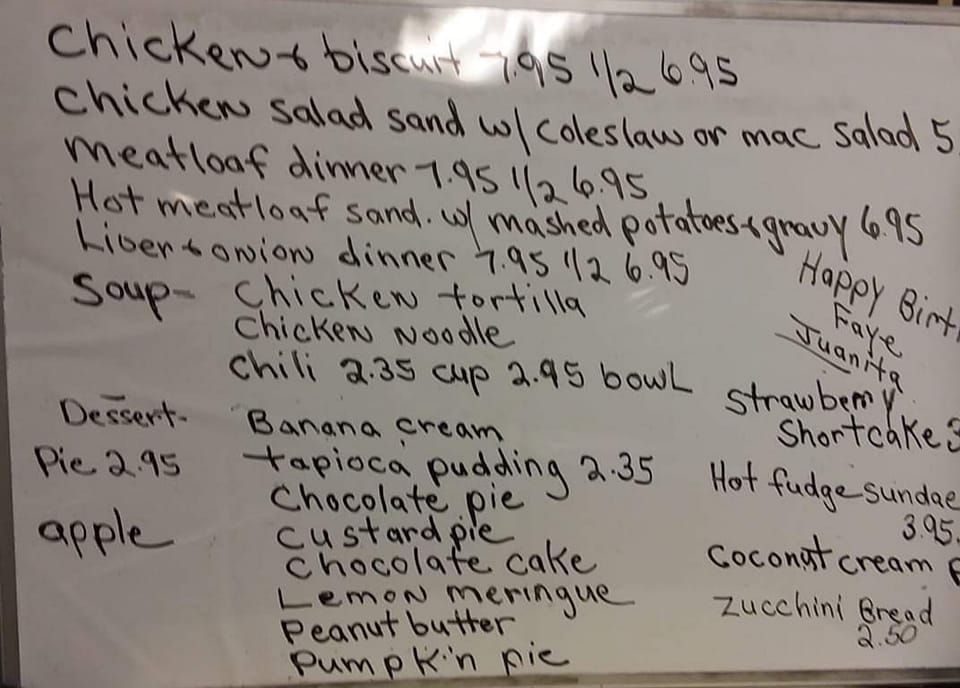 Chicken & biscuit 7.95 1/2 6.95
Chicken salad sand w/ coleslaw or mac salad 5
Meatloaf dinner 7.95 1/2 6.95
Hot meatloaf sand. w/ mashed potatoes & gravy 6.95
Liver & onion dinner 7.95 1/2 6.95
Soup- Chicken tortilla
Chicken Noodle
Chili 2.35 cup 2.95 bowl
Happy Birt
Faye
Juanita
Dessert-
Pie 2.95
apple
Banana cream
tapioca pudding 2.35
Chocolate pie
custard pie
Chocolate cake
Lemon meringue
Peanut butter
Pumpkin pie
Strawberry
Shortcake 3
Hot fudge sundae
3.95.
Coconut cream
Zucchini Bread
2.50